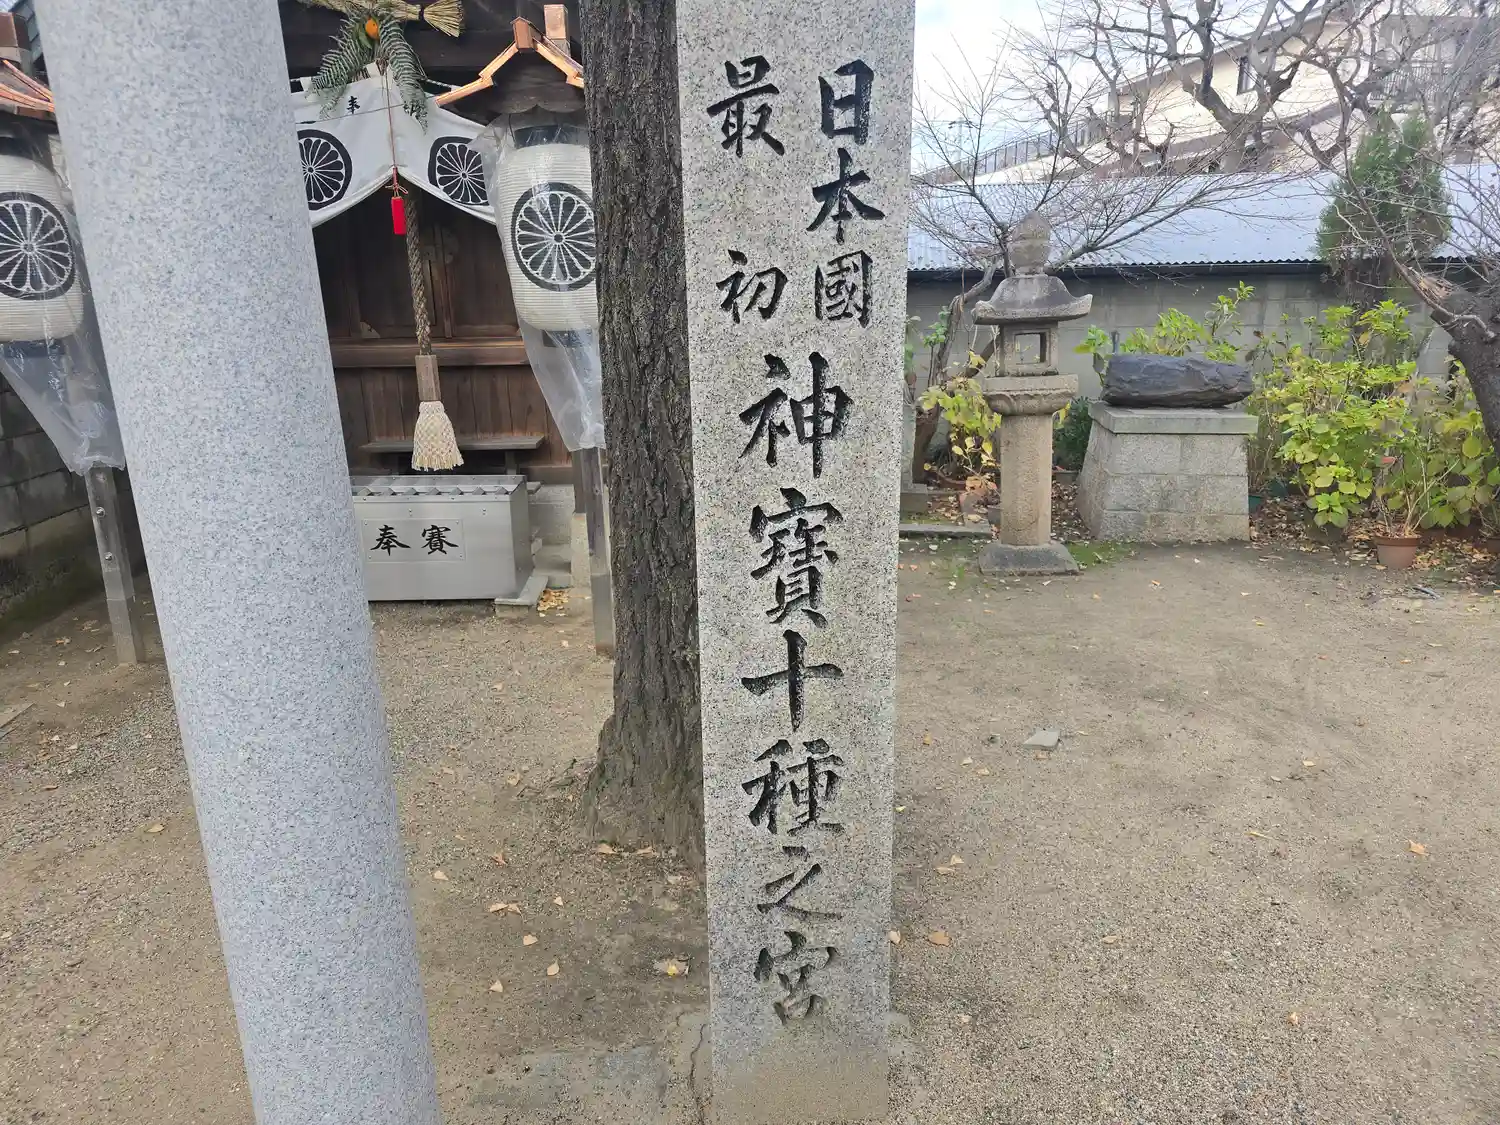 日本國
最初
神寶十種之宮
奉賽
奉